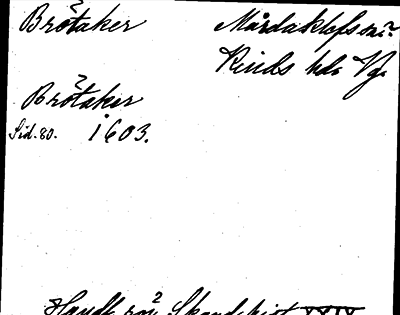 Brötaker Mårdaklefs sn
Kinds hd. Vg.
Brötaker
Sid. 80. i 603.
Handl. rör. Skand. hist. XXIX